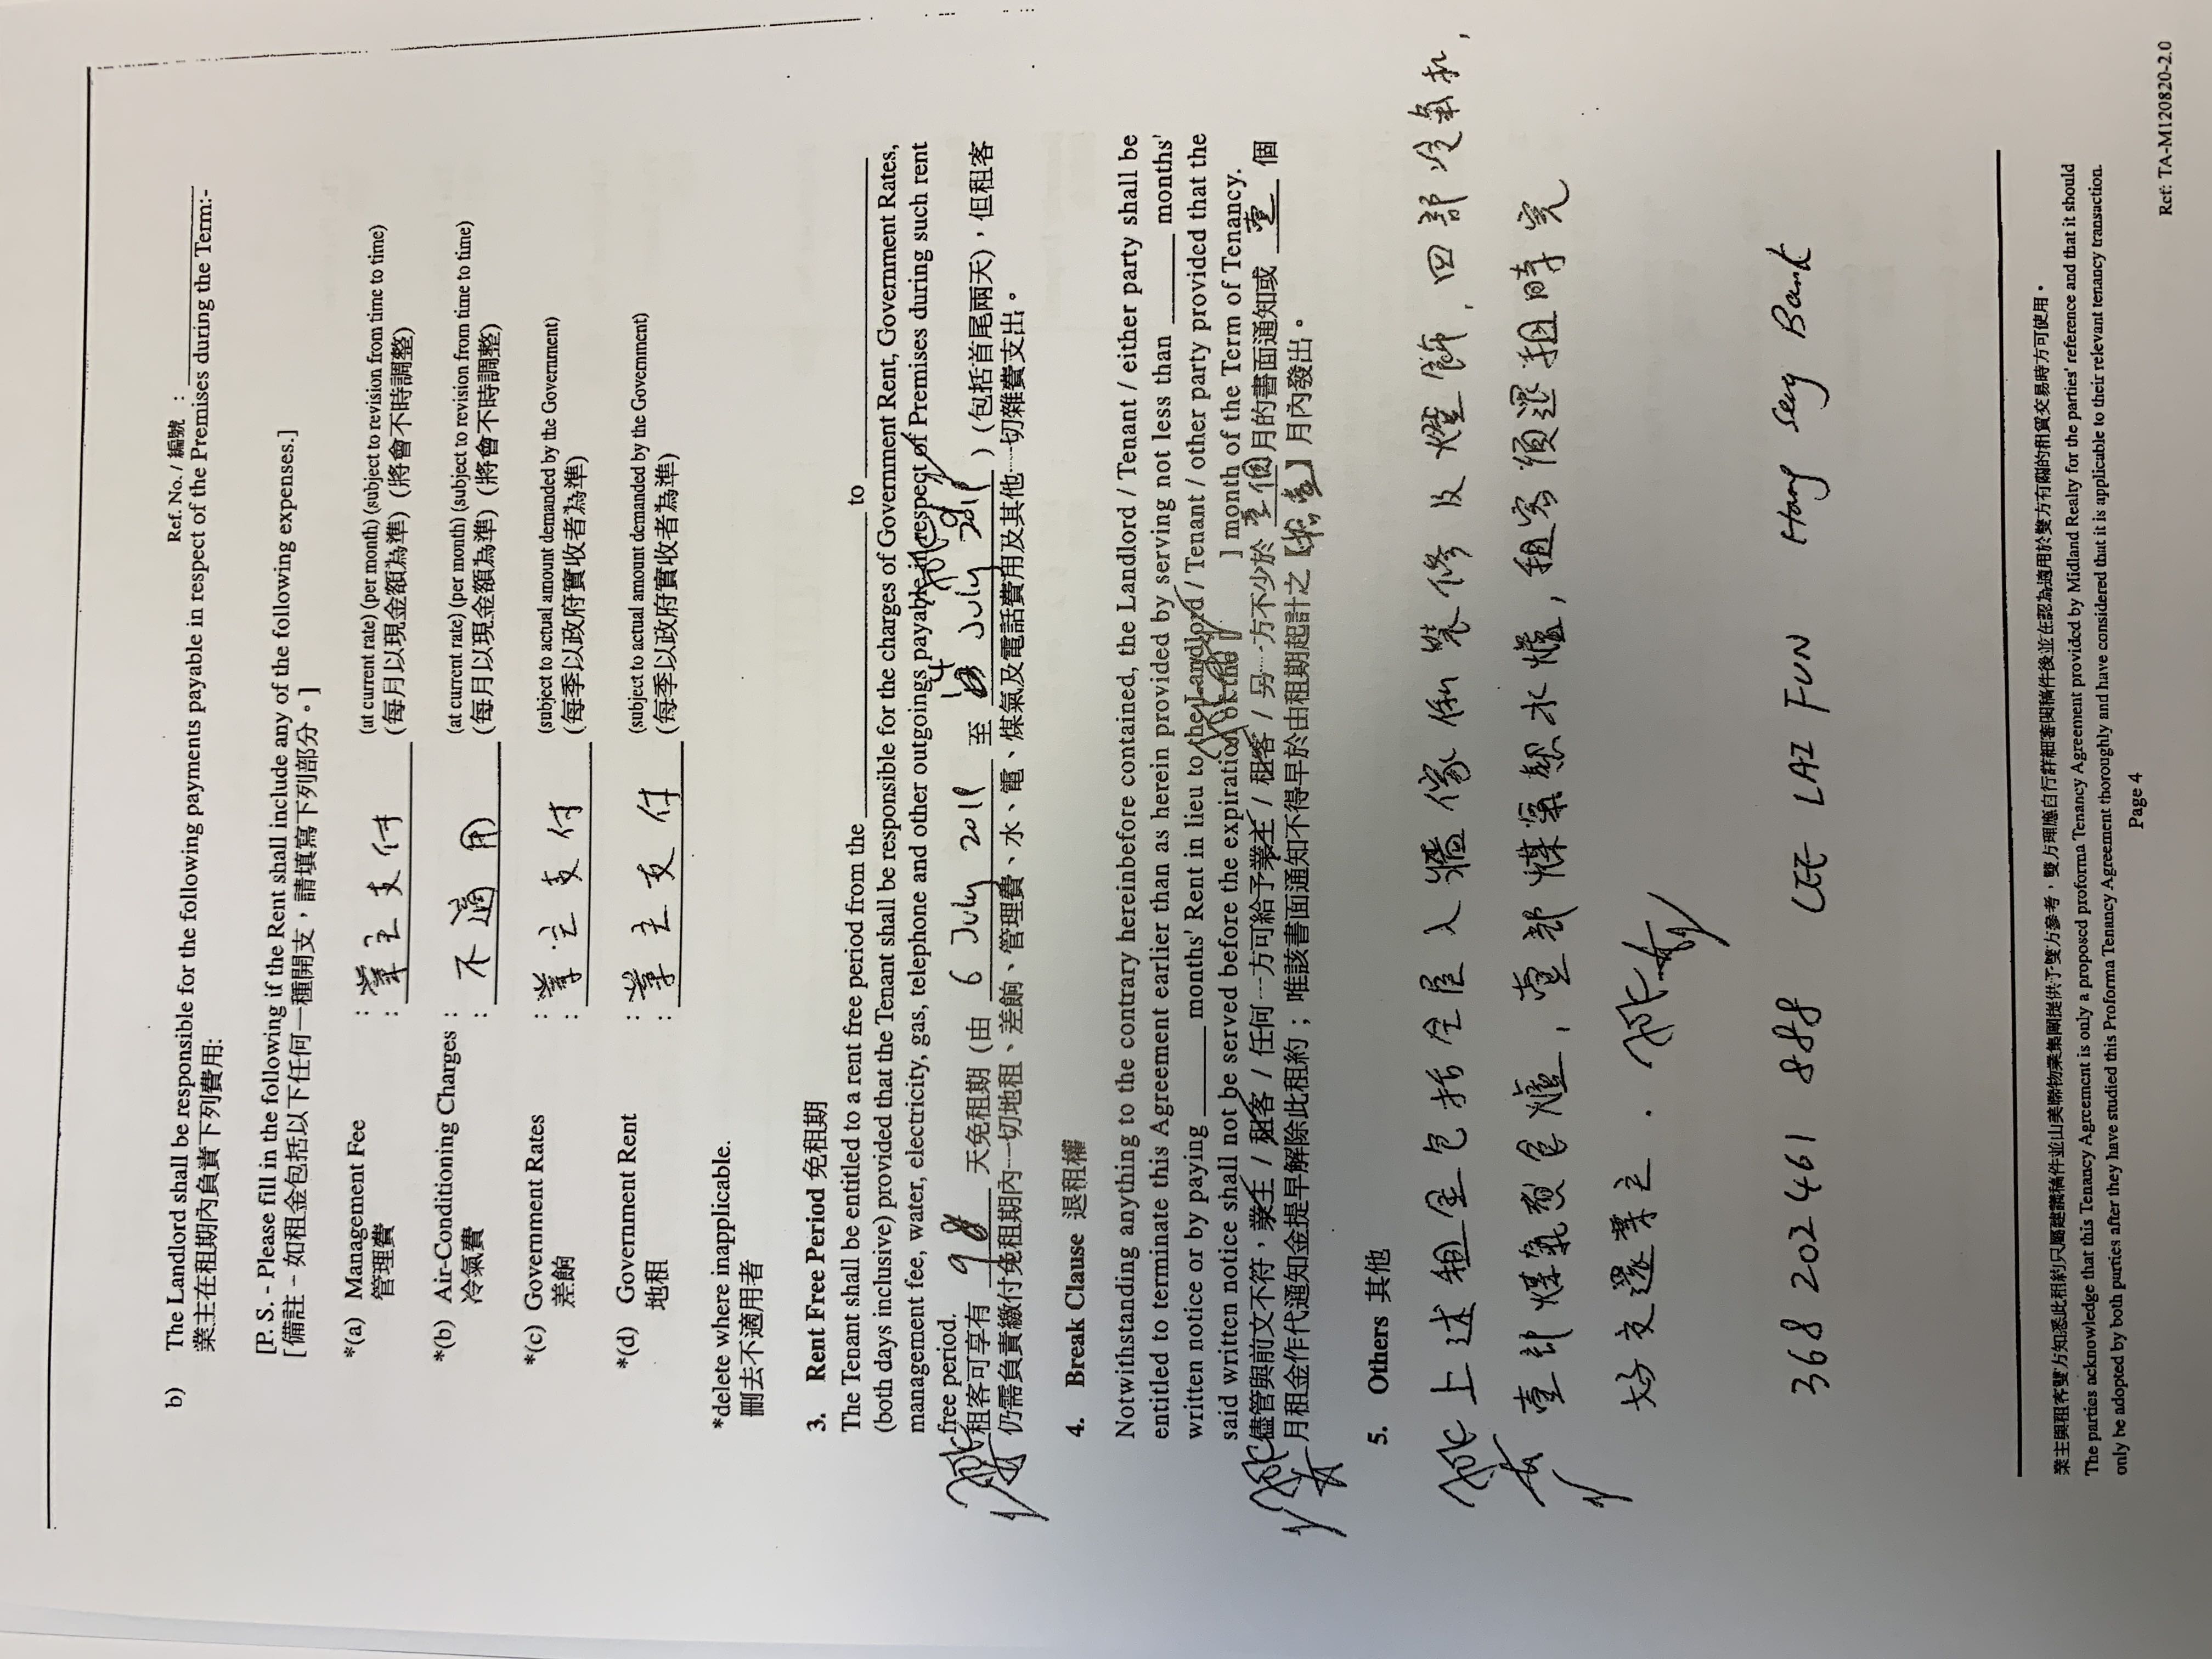 Ref. No. / 編號 :
b) The Landlord shall be responsible for the following payments payable in respect of the Premises during the Term:-
業主在租期內負責下列費用:
[P. S. - Please fill in the following if the Rent shall include any of the following expenses.]
[備註 - 如租金包括以下任何一種開支，請填寫下列部分。]
*(a) Management Fee : 業主支付 (at current rate) (per month) (subject to revision from time to time)
管理費 : (每月以現金額為準) (將會不時調整)
*(b) Air-Conditioning Charges : 不適用 (at current rate) (per month) (subject to revision from time to time)
冷氣費 : (每月以現金額為準) (將會不時調整)
*(c) Government Rates : 業主支付 (subject to actual amount demanded by the Government)
差餉 : (每季以政府實收者為準)
*(d) Government Rent : 業主支付 (subject to actual amount demanded by the Government)
地租 : (每季以政府實收者為準)
*delete where inapplicable.
刪去不適用者
3. Rent Free Period 免租期
The Tenant shall be entitled to a rent free period from the ____ to ____
(both days inclusive) provided that the Tenant shall be responsible for the charges of Government Rent, Government Rates,
management fee, water, electricity, gas, telephone and other outgoings payable in respect of Premises during such rent
free period.
租客可享有 9 天免租期 (由 6 July 2011 至 14 July 2011 ) (包括首尾兩天)，但租客
仍需負責繳付免租期內一切地租、差餉、管理費、水、電、煤氣及電話費用及其他一切雜費支出。
4. Break Clause 退租權
Notwithstanding anything to the contrary hereinbefore contained, the Landlord / Tenant / either party shall be
entitled to terminate this Agreement earlier than as herein provided by serving not less than ____ months'
written notice or by paying ____ months' Rent in lieu to the Landlord / Tenant / other party provided that the
said written notice shall not be served before the expiration of the [ ] month of the Term of Tenancy.
儘管與前文不符，業主 / 租客 / 任何一方可給予業主 / 租客 / 另一方不少於 壹個 月的書面通知或 壹 個
月租金作代通知金提早解除此租約；唯該書面通知不得早於由租期起計之【拾壹】月內發出。
5. Others 其他
上述租金包括全屋入牆傢俬裝修及燈飾，四部冷氣机，
壹部煤氣煮食爐，壹部煤氣熱水爐，租客須還租時完
好交還業主．
368 202461 888 LEE LAI FUN Hang Seng Bank
業主與租客雙方知悉此租約只屬建議稿件並由美聯物業集團提供予雙方參考，雙方理應自行詳細審閱稿件後並在認為適用於雙方有關的租賃交易時方可使用。
The parties acknowledge that this Tenancy Agreement is only a proposed proforma Tenancy Agreement provided by Midland Realty for the parties' reference and that it should
only be adopted by both parties after they have studied this Proforma Tenancy Agreement thoroughly and have considered that it is applicable to their relevant tenancy transaction.
Page 4
Ref: TA-M120820-2.0